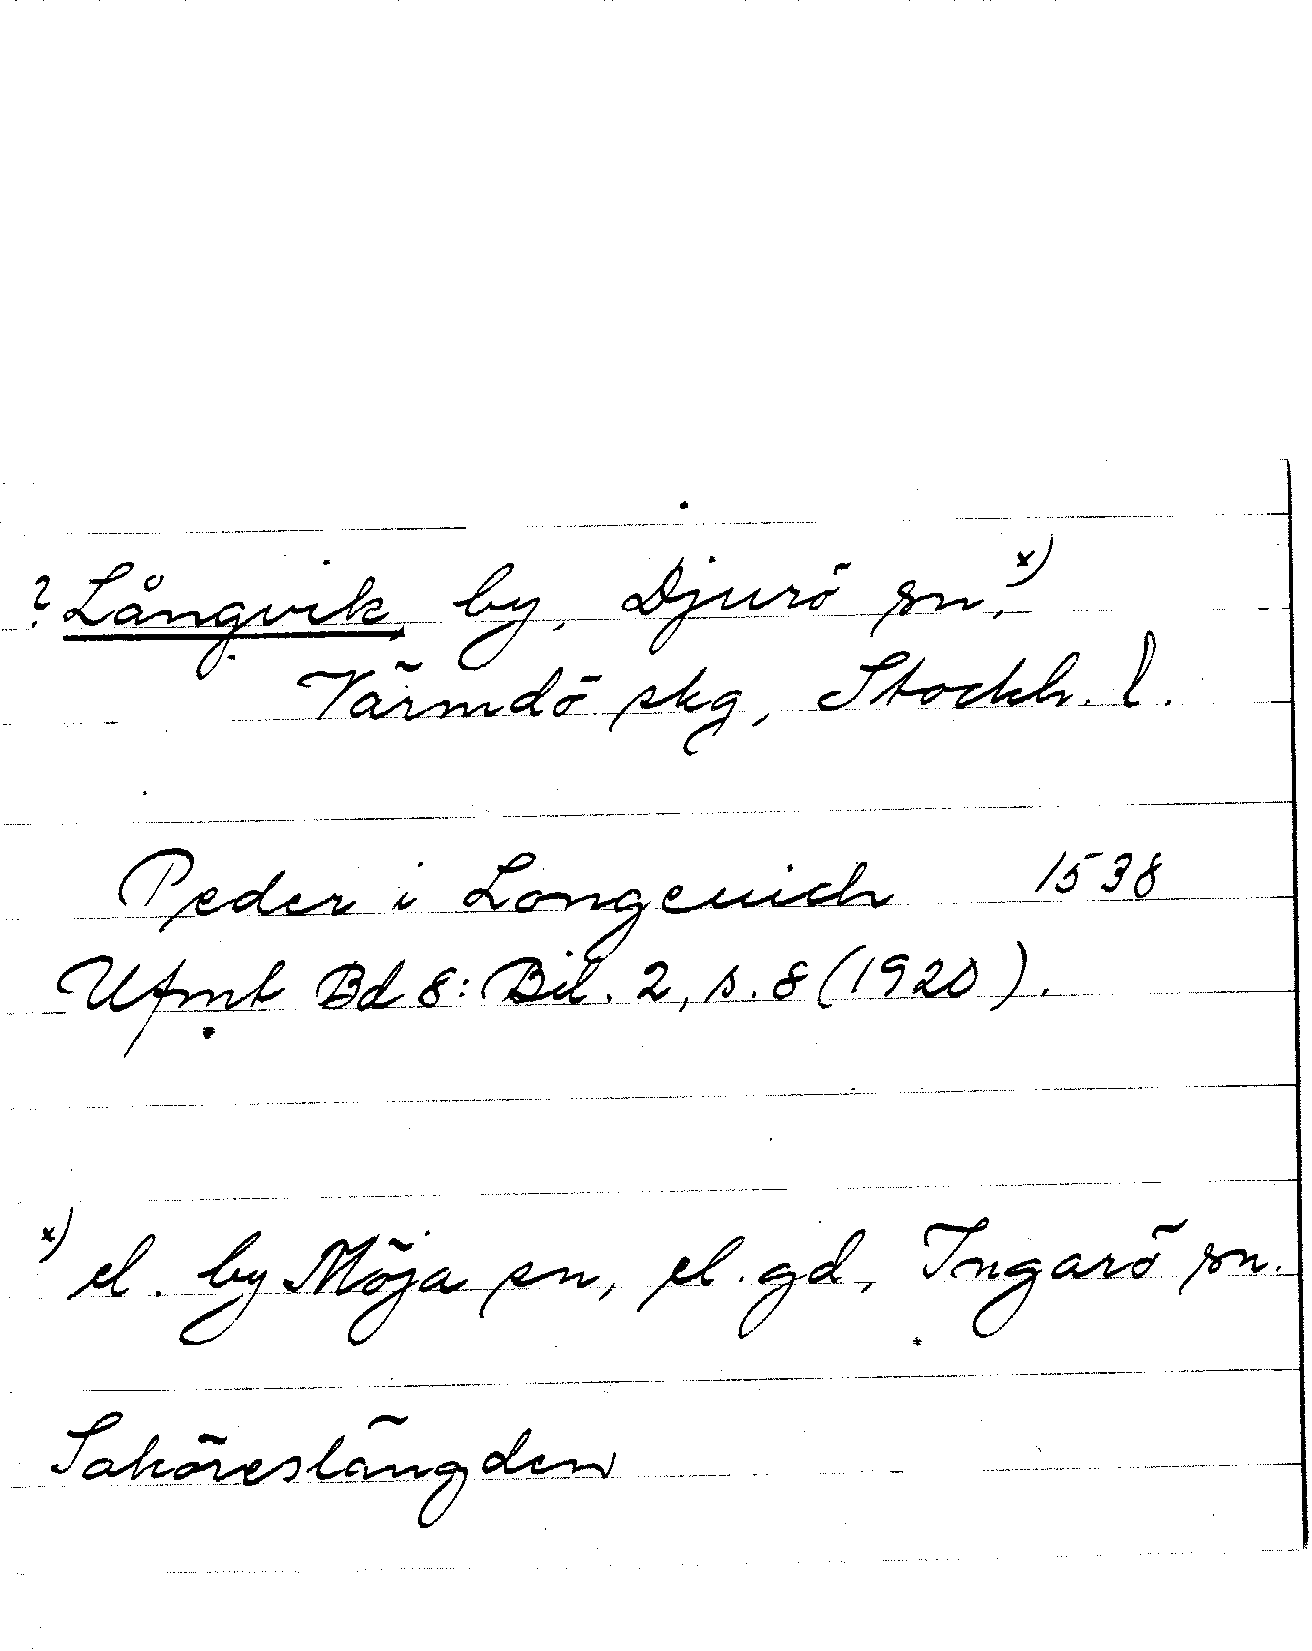 ? Långvik, by, Djurö sn, x)
Värmdö skg, Stockh. l.
Peder i Longeuich 1538
Ufmt Bd 8: Bil. 2, s. 8 (1920).
x) el. by Möja sn, el. gd, Ingarö sn.
Saköreslängden